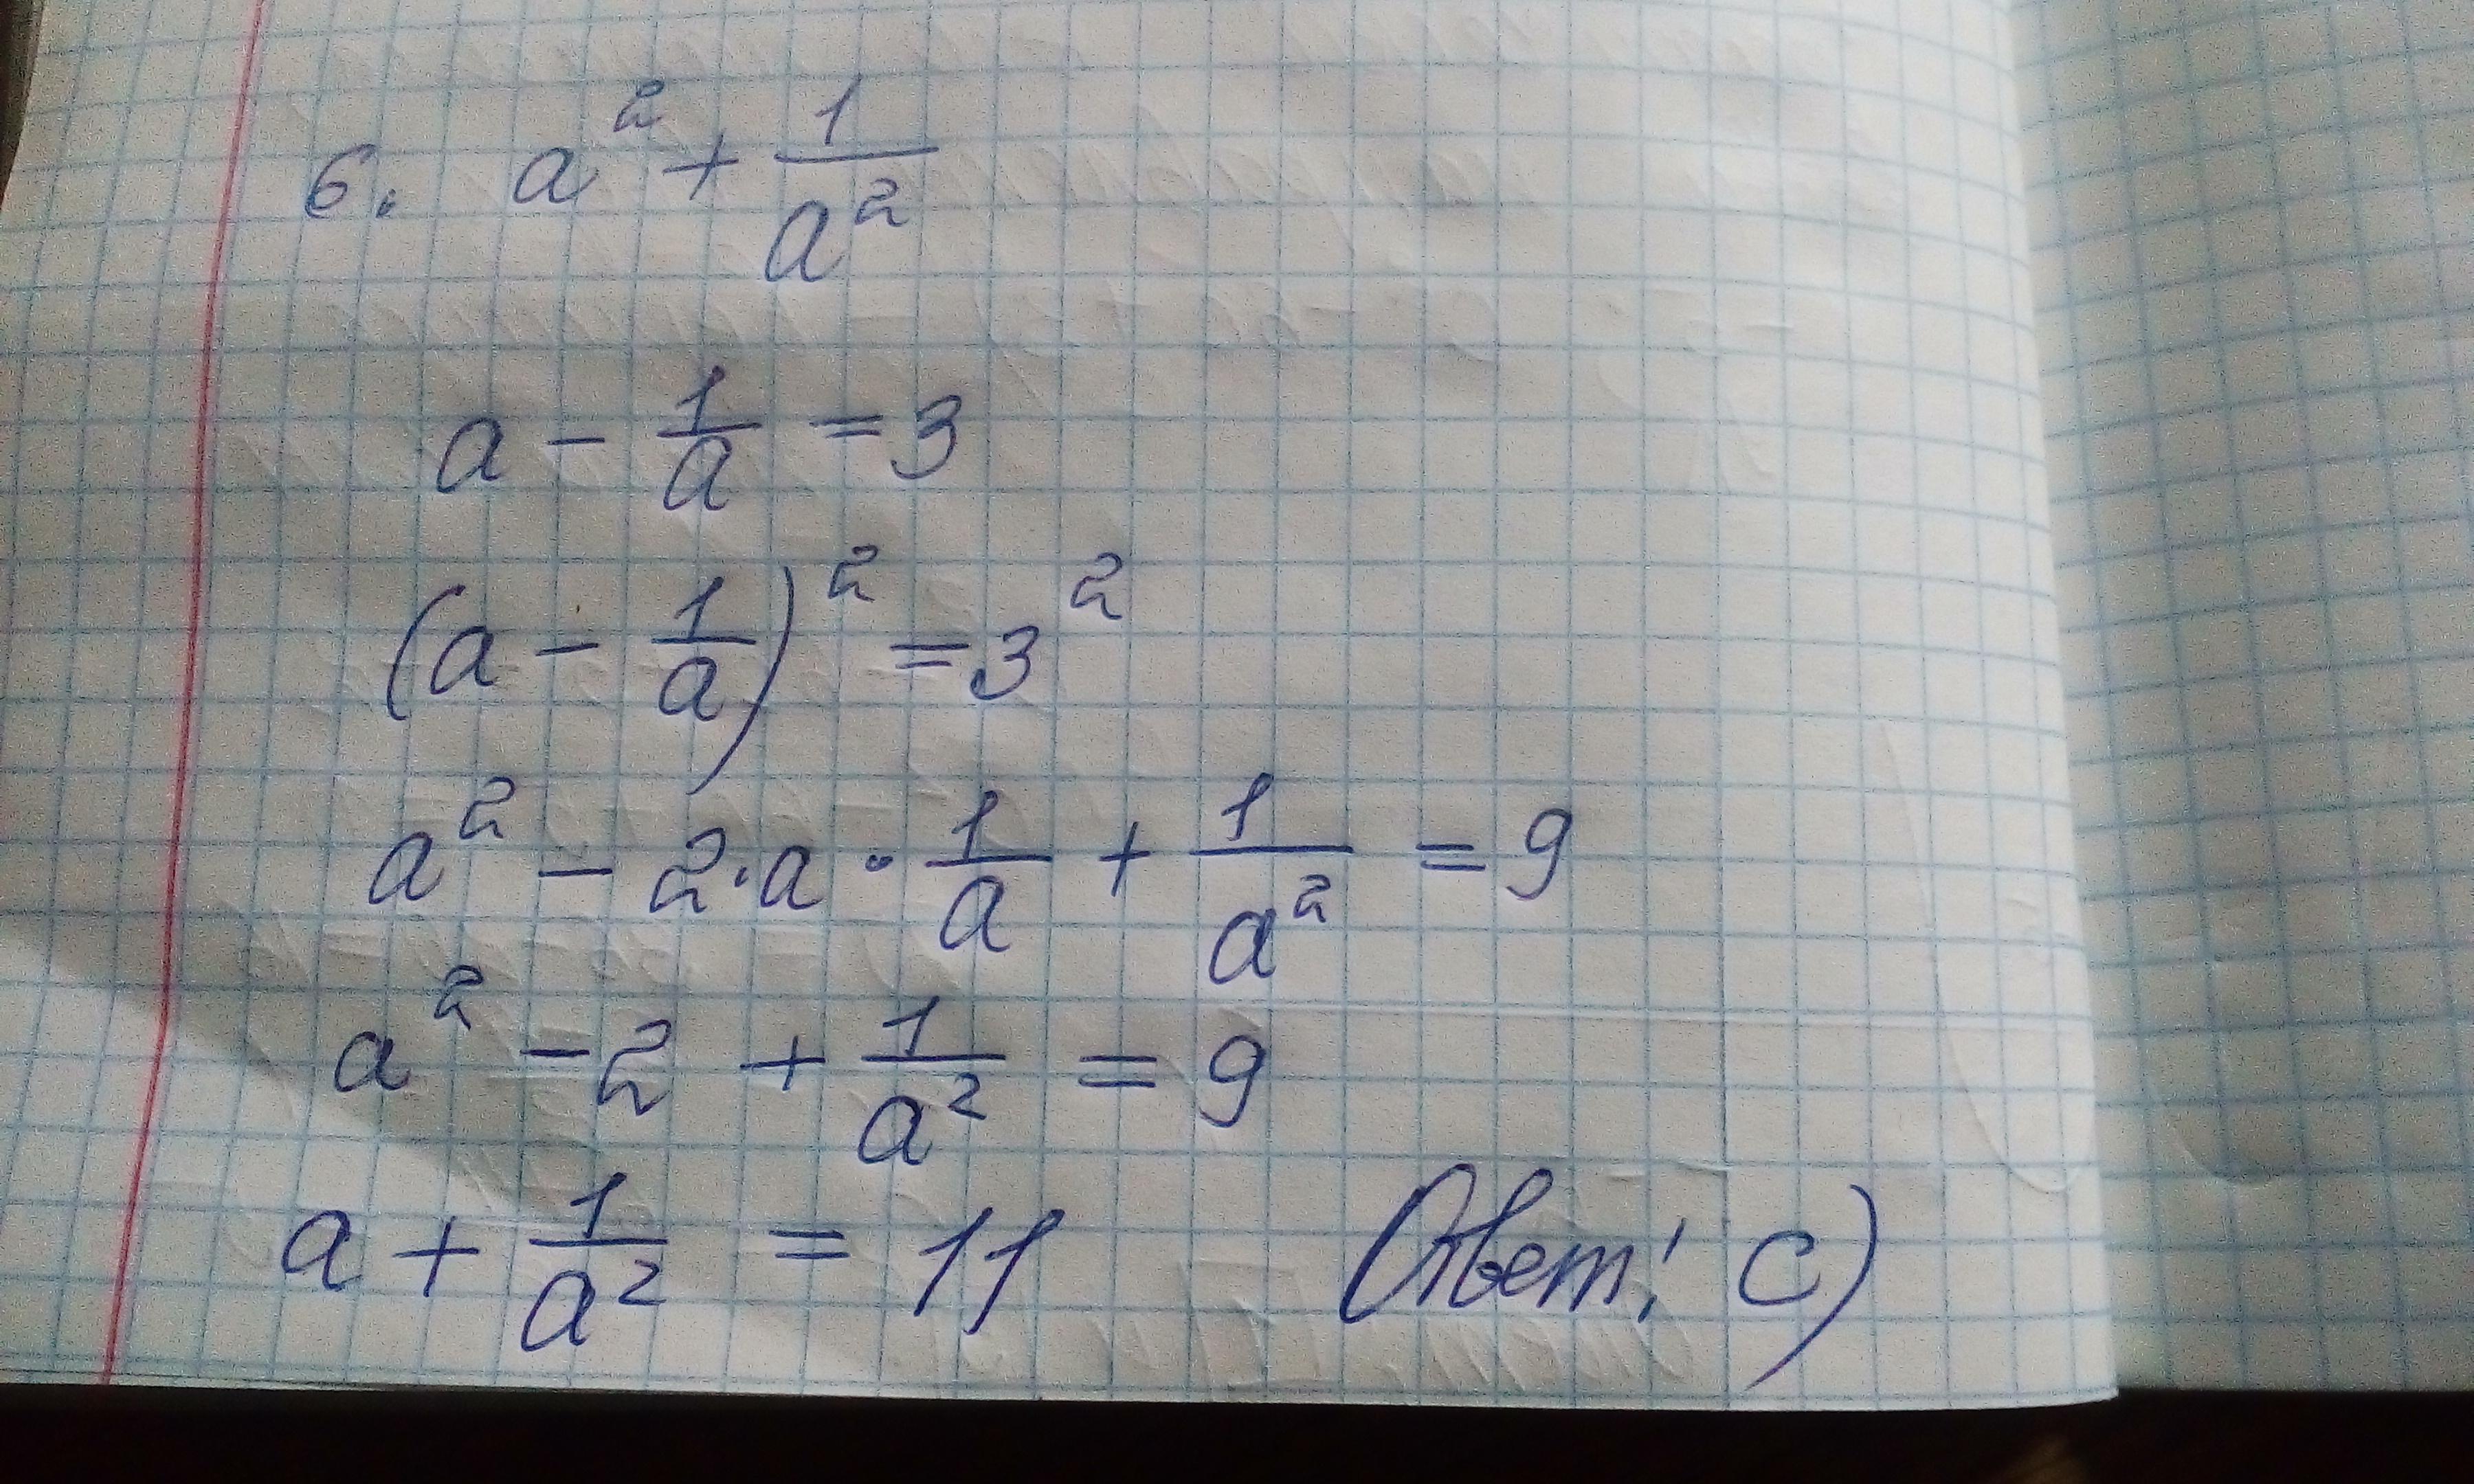 6. a² + 1/a²
a - 1/a = 3
(a - 1/a)² = 3²
a² - 2·a·1/a + 1/a² = 9
a² - 2 + 1/a² = 9
a + 1/a² = 11 Ответ: С)